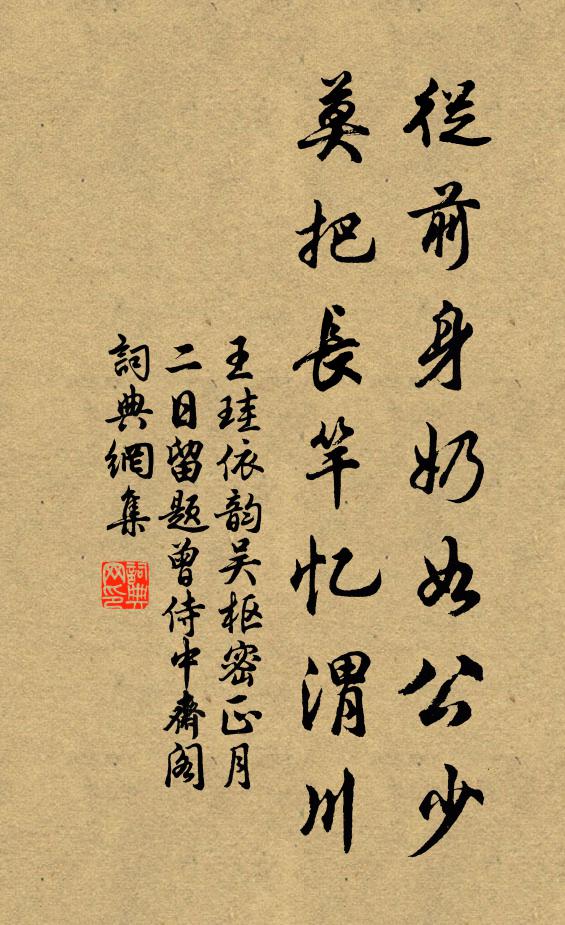 從前身奶如公少
莫把長竿忆渭川
王珪依韵吴枢密正月
二日留题曾侍中齋阁
詞典網集
詞典网印